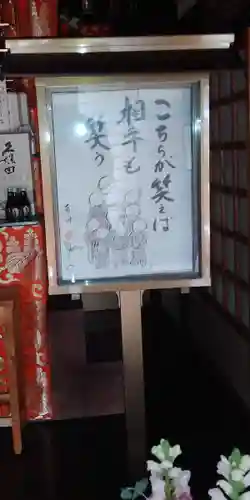 こちらが笑えば
相手も
笑う